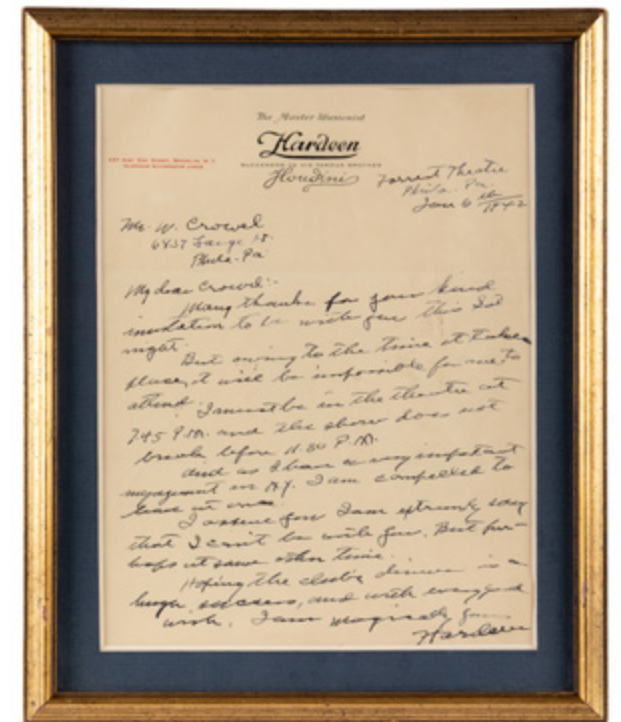 The Master Illusionist
Hardeen
SUCCESSOR TO HIS FAMOUS BROTHER
Houdini
Forrest Theatre
Phila. Pa.
Jan 6 th 1942
Mr. W. Crowel
6837
Phila. Pa
My dear Crowel:-
Many thanks for your kind
invitation to be with you this Sat
night.
But owing to the time it takes
place, it will be impossible for me to
attend. I must be in the theatre at
7.45 P.M. and the show does not
break before 11.30 P.M.
and as I have a very important
engagement in N.Y. I am compelled to
leave at once.
I assure you I am extremely sorry
that I can't be with you. But per-
haps at some other time.
Hoping the dinner is a
huge success, and with every good
wish, I am magically yours
Hardeen